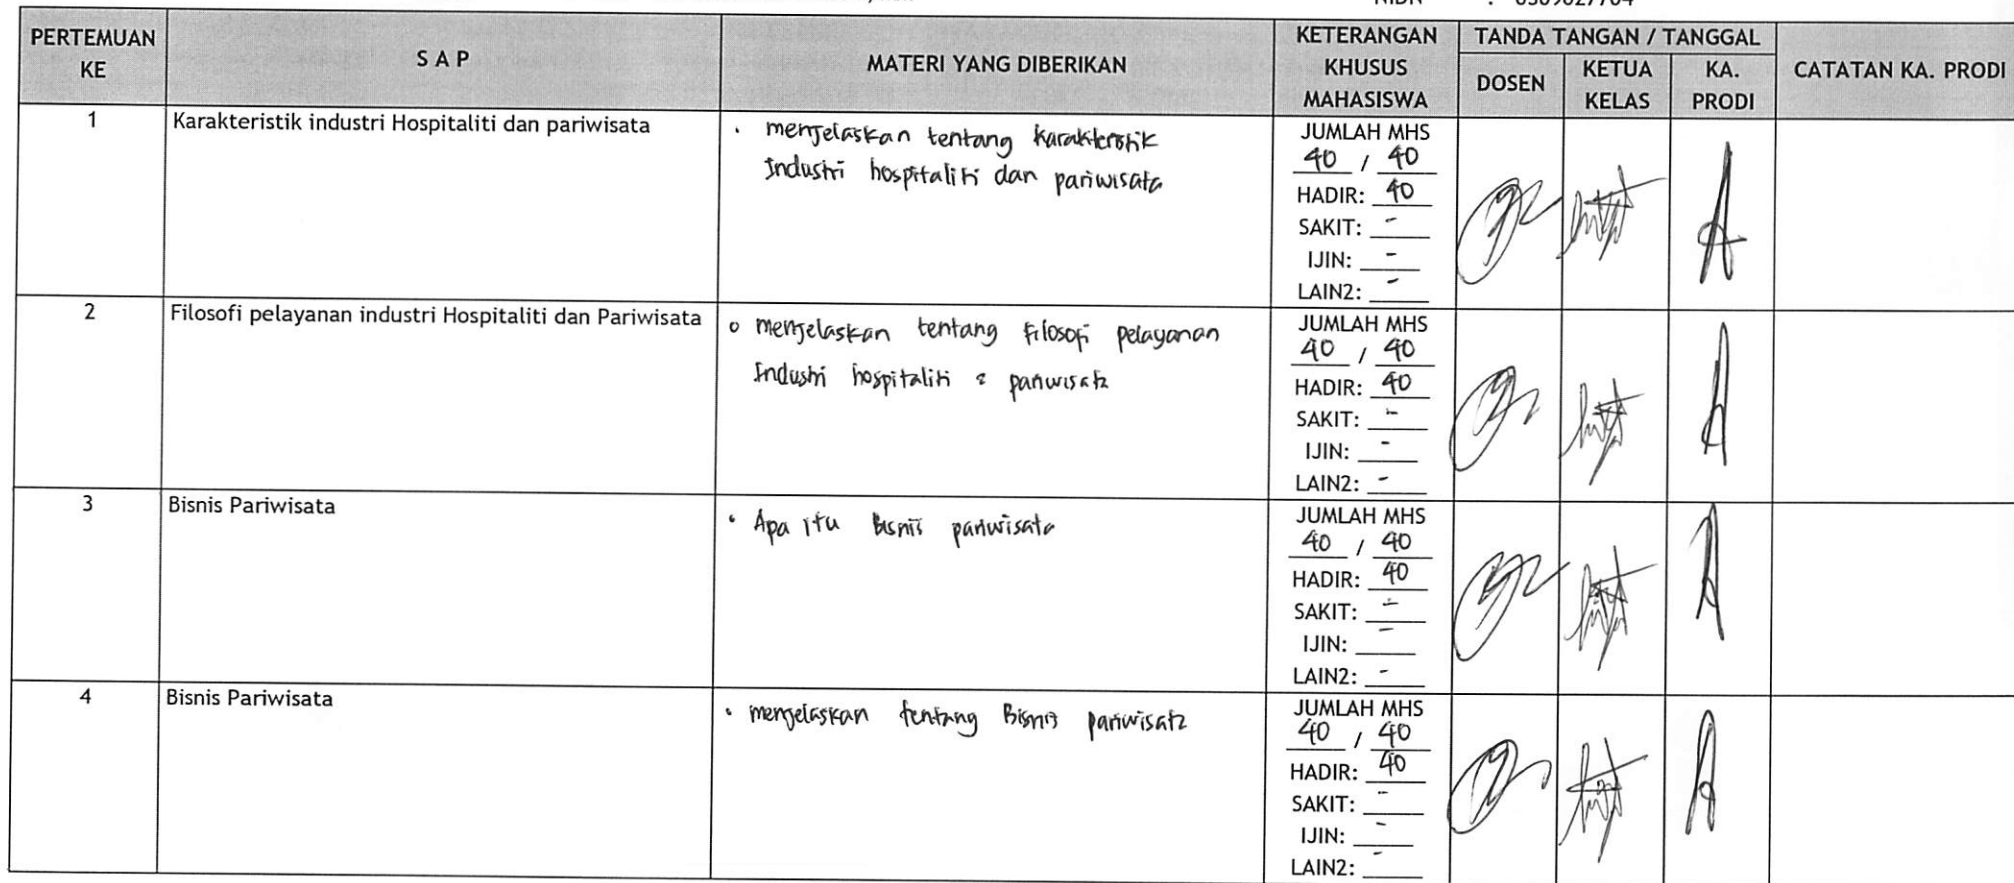 NIDN :
PERTEMUAN KE
S A P
MATERI YANG DIBERIKAN
KETERANGAN KHUSUS MAHASISWA
TANDA TANGAN / TANGGAL
DOSEN
KETUA KELAS
KA. PRODI
CATATAN KA. PRODI
1
Karakteristik industri Hospitaliti dan pariwisata
• menjelaskan tentang karakteristik
Industri hospitaliti dan pariwisata
JUMLAH MHS
40 / 40
HADIR: 40
SAKIT: -
IJIN: -
LAIN2: -
2
Filosofi pelayanan industri Hospitaliti dan Pariwisata
o menjelaskan tentang filosofi pelayanan
Industri hospitaliti & pariwisata
JUMLAH MHS
40 / 40
HADIR: 40
SAKIT: -
IJIN: -
LAIN2: -
3
Bisnis Pariwisata
• Apa itu Bisnis pariwisata
JUMLAH MHS
40 / 40
HADIR: 40
SAKIT: -
IJIN: -
LAIN2: -
4
Bisnis Pariwisata
• menjelaskan tentang Bisnis pariwisata
JUMLAH MHS
40 / 40
HADIR: 40
SAKIT: -
IJIN: -
LAIN2: -